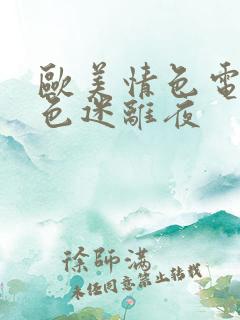 歐美情色電
色迷離夜
徐師滿
未经同意禁止转载